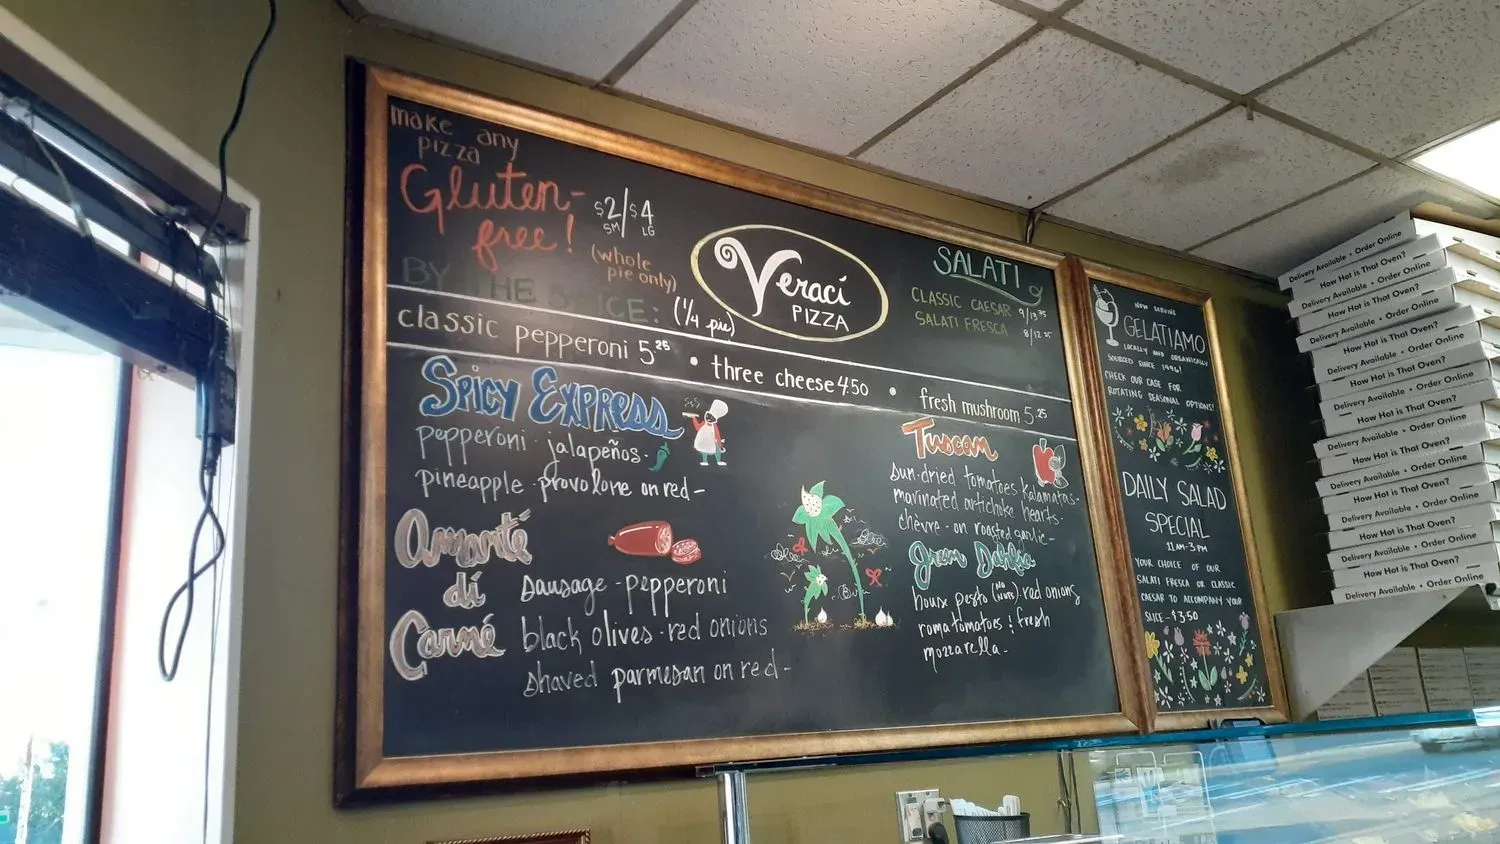 make any
pizza
Gluten-
free!
$2/$4
SM LG
(whole
pie only)
BY THE SLICE: (1/4 pie)
Veraci
PIZZA
SALATI
CLASSIC CAESAR 9/13.75
SALATI FRESCA 8/12.25
classic pepperoni 5.25 • three cheese 4.50 • fresh mushroom 5.25
SPICY EXPRESS
pepperoni · jalapeños ·
pineapple · provolone on red -
Amanté
di
Carné
sausage · pepperoni
black olives · red onions
shaved parmesan on red -
Tuscan
sun-dried tomatoes · kalamatas -
marinated artichoke hearts ·
chèvre - on roasted garlic -
Green Dahlia
house pesto (NO NUTS) red onions
roma tomatoes : fresh
mozzarella -
NOW SERVING
GELATIAMO
LOCALLY AND ORGANICALLY
SOURCED SINCE 1996!
CHECK OUR CASE FOR
ROTATING SEASONAL OPTIONS!
DAILY SALAD
SPECIAL
11 AM-3 PM
YOUR CHOICE OF OUR
SALATI FRESCA OR CLASSIC
CAESAR TO ACCOMPANY YOUR
SLICE - $3.50
Delivery Available • Order Online
How Hot is That Oven?
Delivery Available • Order Online
How Hot is That Oven?
Delivery Available • Order Online
How Hot is That Oven?
Delivery Available • Order Online
How Hot is That Oven?
Delivery Available • Order Online
How Hot is That Oven?
Delivery Available • Order Online
How Hot is That Oven?
Delivery Available • Order Online
How Hot is That Oven?
Delivery Available • Order Online
How Hot is That Oven?
Delivery Available • Order Online
How Hot is That Oven?
Delivery Available • Order Online